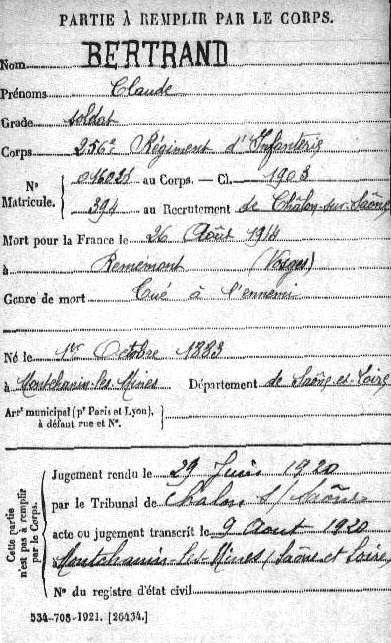 PARTIE À REMPLIR PAR LE CORPS.
Nom BERTRAND
Prénoms Claude
Grade soldat
Corps 256e Régiment d'Infanterie
N° Matricule. { 016021 au Corps. — Cl. 1903
394 au Recrutement de Châlon-sur-Saône
Mort pour la France le 26 Août 1914
à Remémont (Vosges)
Genre de mort Tué à l'ennemi
Né le 1er Octobre 1883
à Montchanin-les-Mines Département de Saône-et-Loire
Arrt municipal (pr Paris et Lyon),
à défaut rue et N°.
Cette partie n'est pas à remplir par le Corps.
Jugement rendu le 29 Juin 1920
par le Tribunal de Chalon s/ Saône
acte ou jugement transcrit le 9 Aout 1920
Montchanin-les-Mines (Saône et Loire)
N° du registre d'état civil
534-708-1921. [26434.]